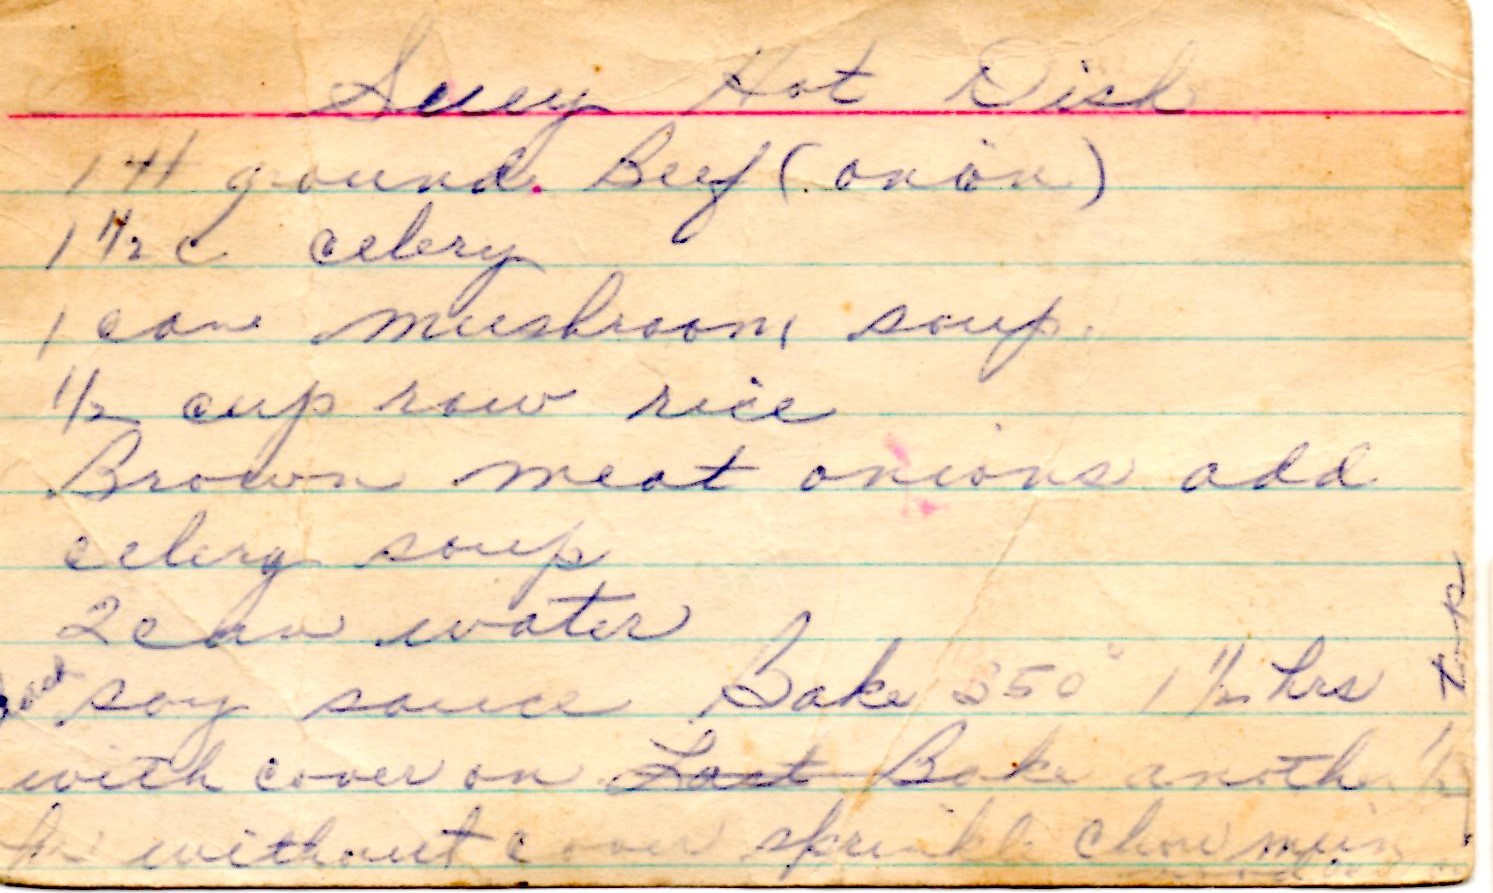 Suey Hot Dish
1 # ground Beef (onion)
1 1/2 c celery
1 can mushroom soup.
1/2 cup raw rice
Brown meat onions add
celery soup
2 can water
soy sauce Bake 350° 1 1/2 hrs
with cover on Last Bake another 1/2
hr without cover sprinkle chow mein